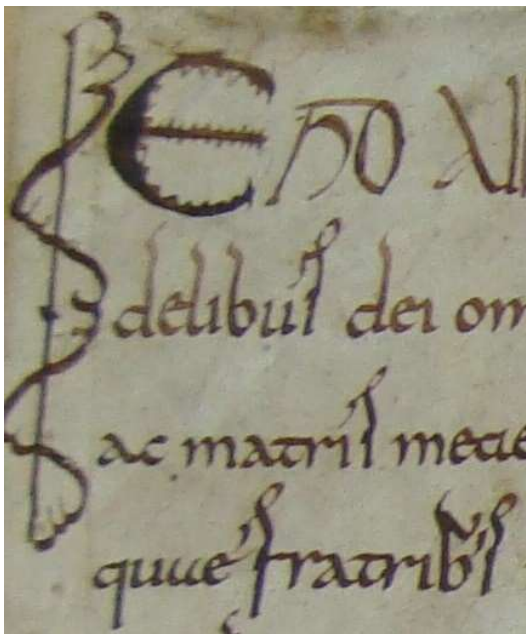 Ego
delibus dei om
ac matris meae
quae fratribs